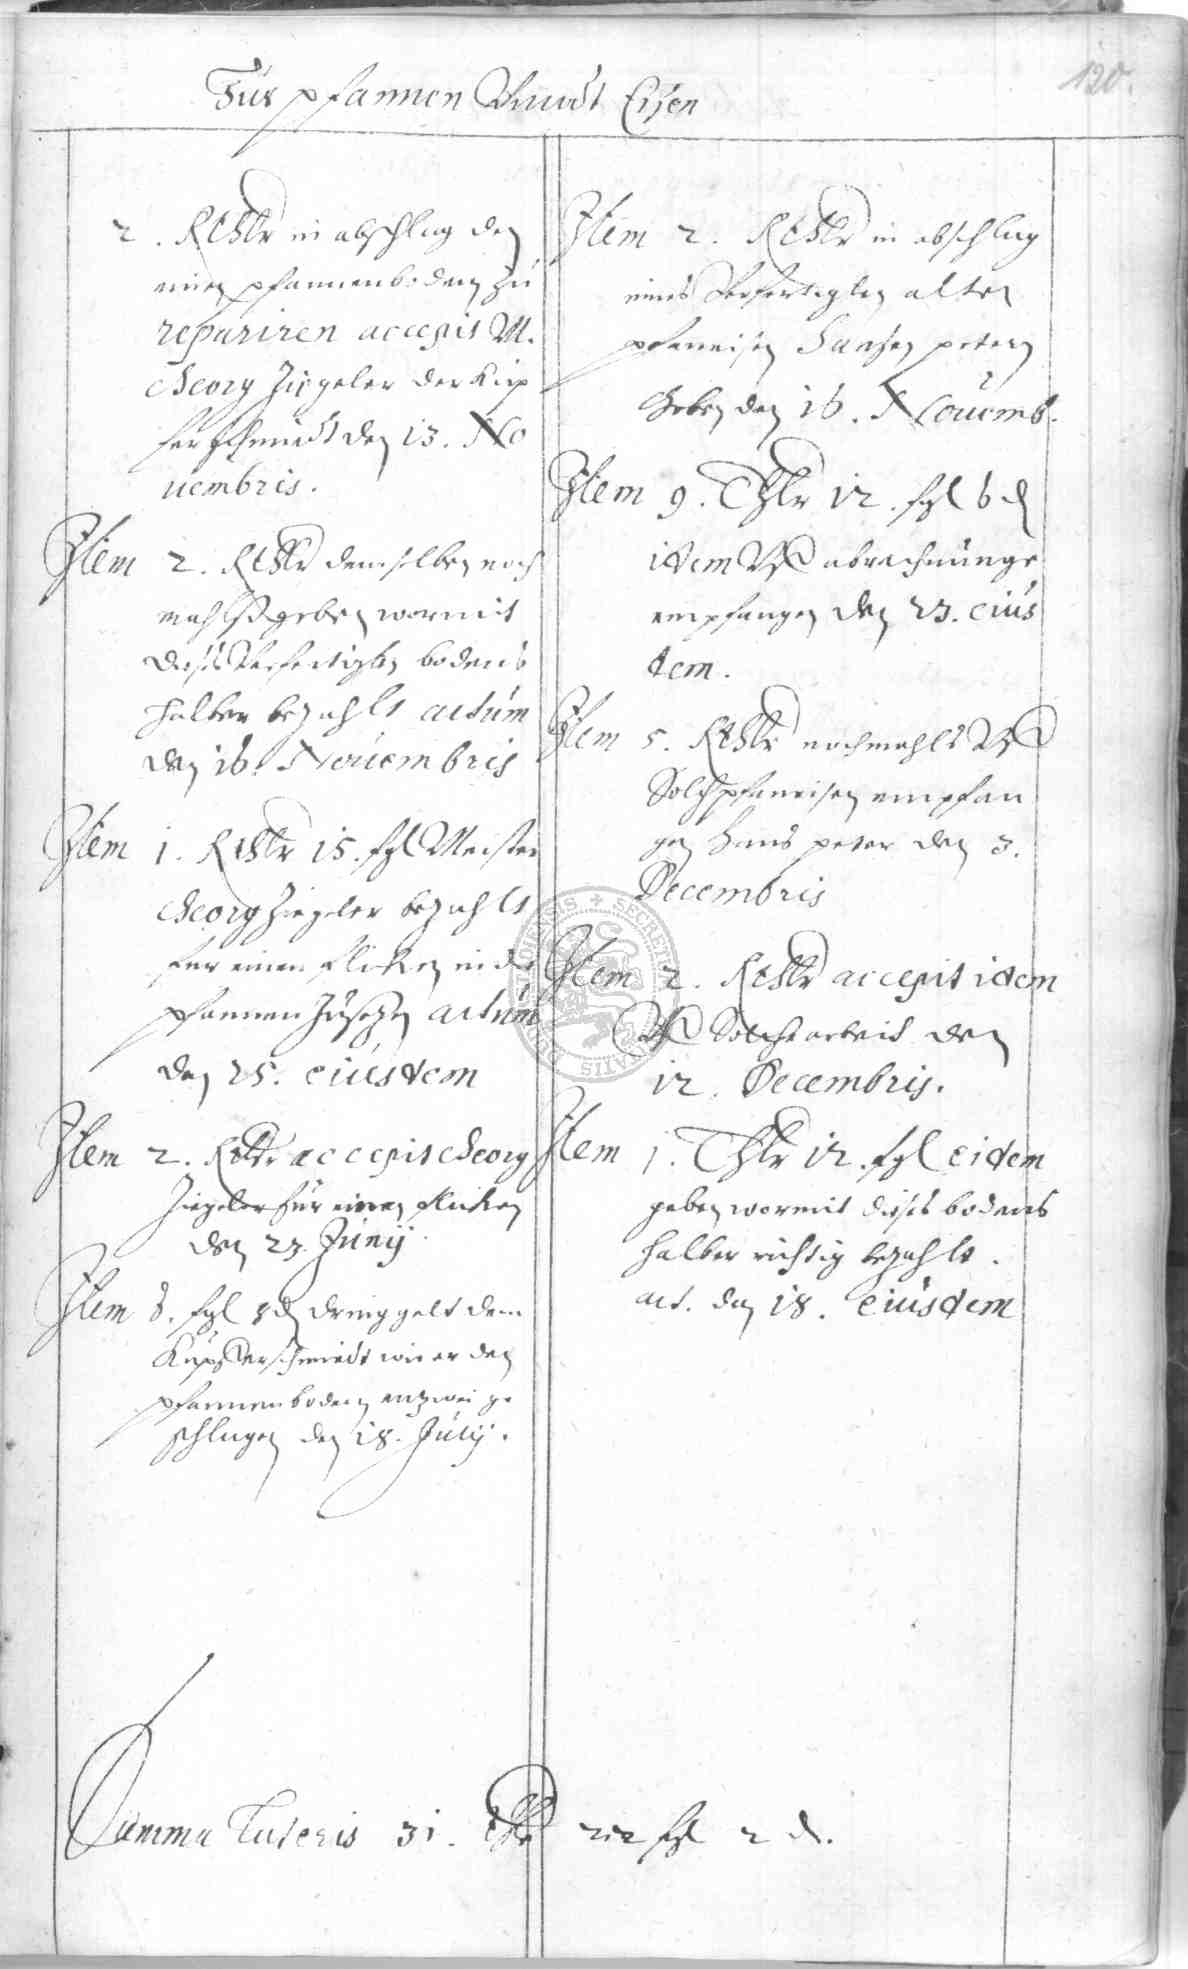 120.
Für pfannen Vnndt Eisen
2. Rthlr in abschlag den
einen pfannenboden zu
repariren accepit M.
Georg Ziegeler der Kup
fer schmiedt den 13. No
uembris.
Item 2. Rthlr demselben noch
mahlß geben wormit
dieses Verfertigten bodens
halber bezahlt actum
den 16. Nouembris
Item 1. Rthlr 15. sgl Meister
Georg Ziegeler bezahlt
fur einen flicken in der
pfannen Zusetzen actum
den 25. eiusdem
Item 2. Rthlr accepit Georg
Ziegeler für einen flicken
den 23. Junij
Item 8. sgl 8 d dringgelt dem
Kupfferschmiedt wie er den
pfannenboden entzwei ge
schlagen den 18. Julij.
Item 2. Rthlr in abschlag
eines Verfertigten alten
pfanneisen Hansen petern
Geben den 16. Nouemb.
Item 9. Thlr 12. sgl 6 d
idem Vff abrechnunge
empfangen den 23. eius
dem.
Item 5. Rthlr nochmahls Vff
Solch pfaneisen empfan
gen Hans peter den 3.
Decembris
Item 2. Rthlr accepit idem
Vff Solche arbeit den
12. Decembris.
Item 1. Thlr 12. sgl eidem
geben wormit dieses bodens
halber richtig bezahlt.
act. den 18. eiusdem
Summa Lateris 31. thlr 22 sgl 2 d.